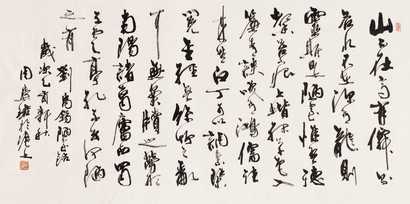 山不在高有仙则名
水不在深有龙则
灵斯是陋室惟吾德
馨苔痕上阶绿草色入
帘青谈笑有鸿儒往
来无白丁可以调素琴
阅金经无丝竹之乱
耳无案牍之劳形
南阳诸葛庐西蜀
子云亭孔子云何陋
之有
刘禹锡陋室铭